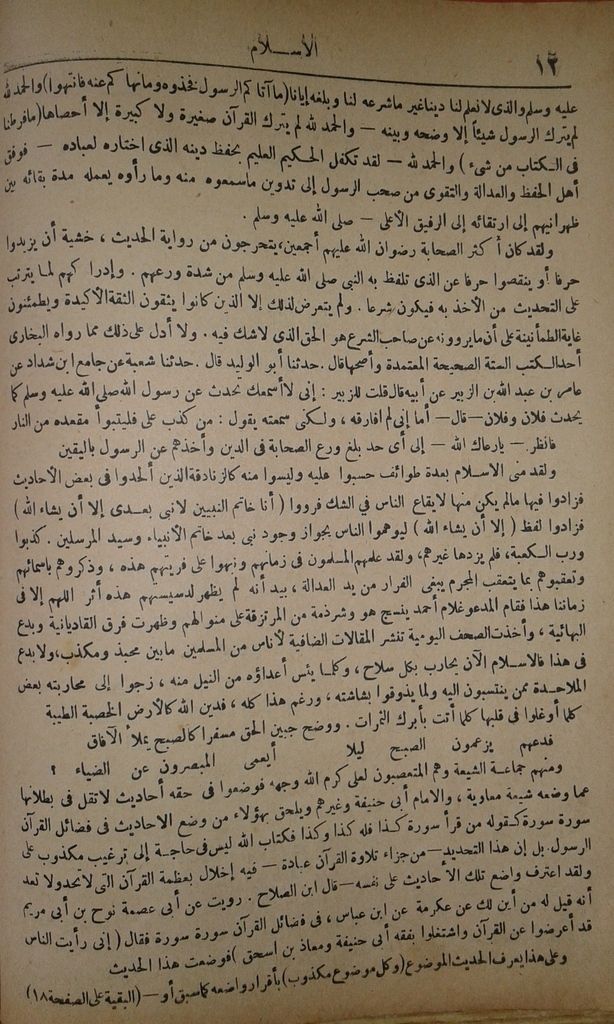 ١٢
الاســلام
عليه وسلم والذى لا نعلم لنا دينا غير ما شرعه لنا وبلغه إيانا (ما آتاكم الرسول فخذوه وما نهاكم عنه فانتهوا) والحمد لله
لم يترك الرسول شيئاً إلا وضحه وبينه — والحمد لله لم يترك القرآن صغيرة ولا كبيرة إلا أحصاها (ما فرطنا
فى الكتاب من شىء) والحمد لله — لقد تكفل الحكيم العليم بحفظ دينه الذى اختاره لعباده — فوفق
أهل الحفظ والعدالة والتقوى من صحب الرسول إلى تدوين ما سمعوه منه وما رأوه يعمله مدة بقائه بين
ظهرانيهم إلى ارتقائه إلى الرفيق الأعلى — صلى الله عليه وسلم .
ولقد كان أكثر الصحابة رضوان الله عليهم أجمعين، يتحرجون من رواية الحديث ، خشية أن يزيدوا
حرفا أو ينقصوا حرفا عن الذى تلفظ به النبى صلى الله عليه وسلم من شدة ورعهم . وإدراكهم لما يترتب
على التحديث من الأخذ به فيكون شرعا . ولم يتعرض لذلك إلا الذين كانوا يثقون الثقة الأكيدة ويطمئنون
غاية الطمأنينة على أن مايروونه عن صاحب الشرع هو الحق الذى لاشك فيه . ولا أدل على ذلك مما رواه البخارى
أحد الكتب الستة الصحيحة المعتمدة وأصحها قال . حدثنا أبو الوليد قال . حدثنا شعبة عن جامع ابن شداد عن
عامر بن عبد الله بن الزبير عن أبيه قال قلت للزبير : إنى لا أسمعك تحدث عن رسول الله صلى الله عليه وسلم كما
يحدث فلان وفلان — قال — أما إنى لم افارقه ، ولكنى سمعته يقول : من كذب على فليتبوأ مقعده من النار
فانظر — يارعاك الله — إلى أى حد بلغ ورع الصحابة فى الدين وأخذهم عن الرسول باليقين
ولقد منى الاسلام بعدة طوائف حسبوا عليه وليسوا منه كالزنادقة الذين ألحدوا فى بعض الأحاديث
فزادوا فيها مالم يكن منها لايقاع الناس في الشك فرووا ( أنا خاتم النبيين لانبى بعـدى إلا أن يشاء الله )
فزادوا لفظ ( إلا أن يشاء الله ) ليوهموا الناس بجواز وجود نبى بعد خاتم الأنبياء وسيد المرسلين . كذبوا
ورب الكعبة، فلم يزدها غيرهم، ولقد علمهم المسلمون فى زمانهم ونبهوا على فريتهم هذه ، وذكروهم باسمائهم
وتعقبوهم بما يتعقب المجرم يبغى الفرار من يد العدالة ، بيد أنه لم يظهر لدسيستهم هذه أثر اللهم إلا فى
زماننا هذا فقام المدعو غلام أحمد ينسج هو وشرذمة من المرتزقة على منوالهم وظهرت فرق القاديانية وبدع
البهائية ، وأخذت الصحف اليومية تنشر المقالات الضافية لأناس من المسلمين مابين محبذ ومكذب، ولا بدع
فى هذا فالاسلام الآن يحارب بكل سلاح ، وكلما يئس أعداؤه من النيل منه ، زجوا إلى محاربته بعض
الملاحدة ممن ينتسبون اليه ولما يذوقوا بشاشته ، ورغم هذا كله ، فدين الله كالأرض الخصبة الطيبة
كلما أوغلوا فى قلبها كلما أتت بأبرك الثمرات . ووضح جبين الحق مسفرا كالصبح يملأ الآفاق
فدعهم يزعمون الصبح ليلا أيعمى المبصرون عن الضياء ؟
ومنهم جماعـة الشيعة وهم المتعصبون لعلى كرم الله وجهه فوضعوا فى حقه أحاديث لاتقل فى بطلانها
عما وضعه شيعة معاوية ، والامام أبى حنيفة وغيرهم ويلحق بهؤلاء من وضع الاحاديث فى فضائل القرآن
سورة سورة كـقوله من قرأ سورة كـذا فله كذا وكذا فكتاب الله ليس فى حاجـة إلى ترغيب مكذوب على
الرسول . بل إن هذا التحديد — من جزاء تلاوة القرآن عبادة — فيه إخلال بعظمة القرآن التى لا تحد ولا تعد
ولقد اعترف واضع تلك الأحاديث على نفسه — قال ابن الصلاح . رويت عن أبى عصمة نوح بن أبى مريم
أنه قيل له من أين لك عن عكرمة عن ابن عباس ، فى فضائل القرآن سورة سورة فقال ( إنى رأيت الناس
قد أعرضوا عن القرآن واشتغلوا بفقه أبى حنيفة ومغازى بن اسحق ) فوضعت هذا الحديث
وعلى هذا يعرف الحديث الموضوع (وكل موضوع مكذوب) بأقرار واضعه كما سبق أو — (البقية على الصفحة ١٨)